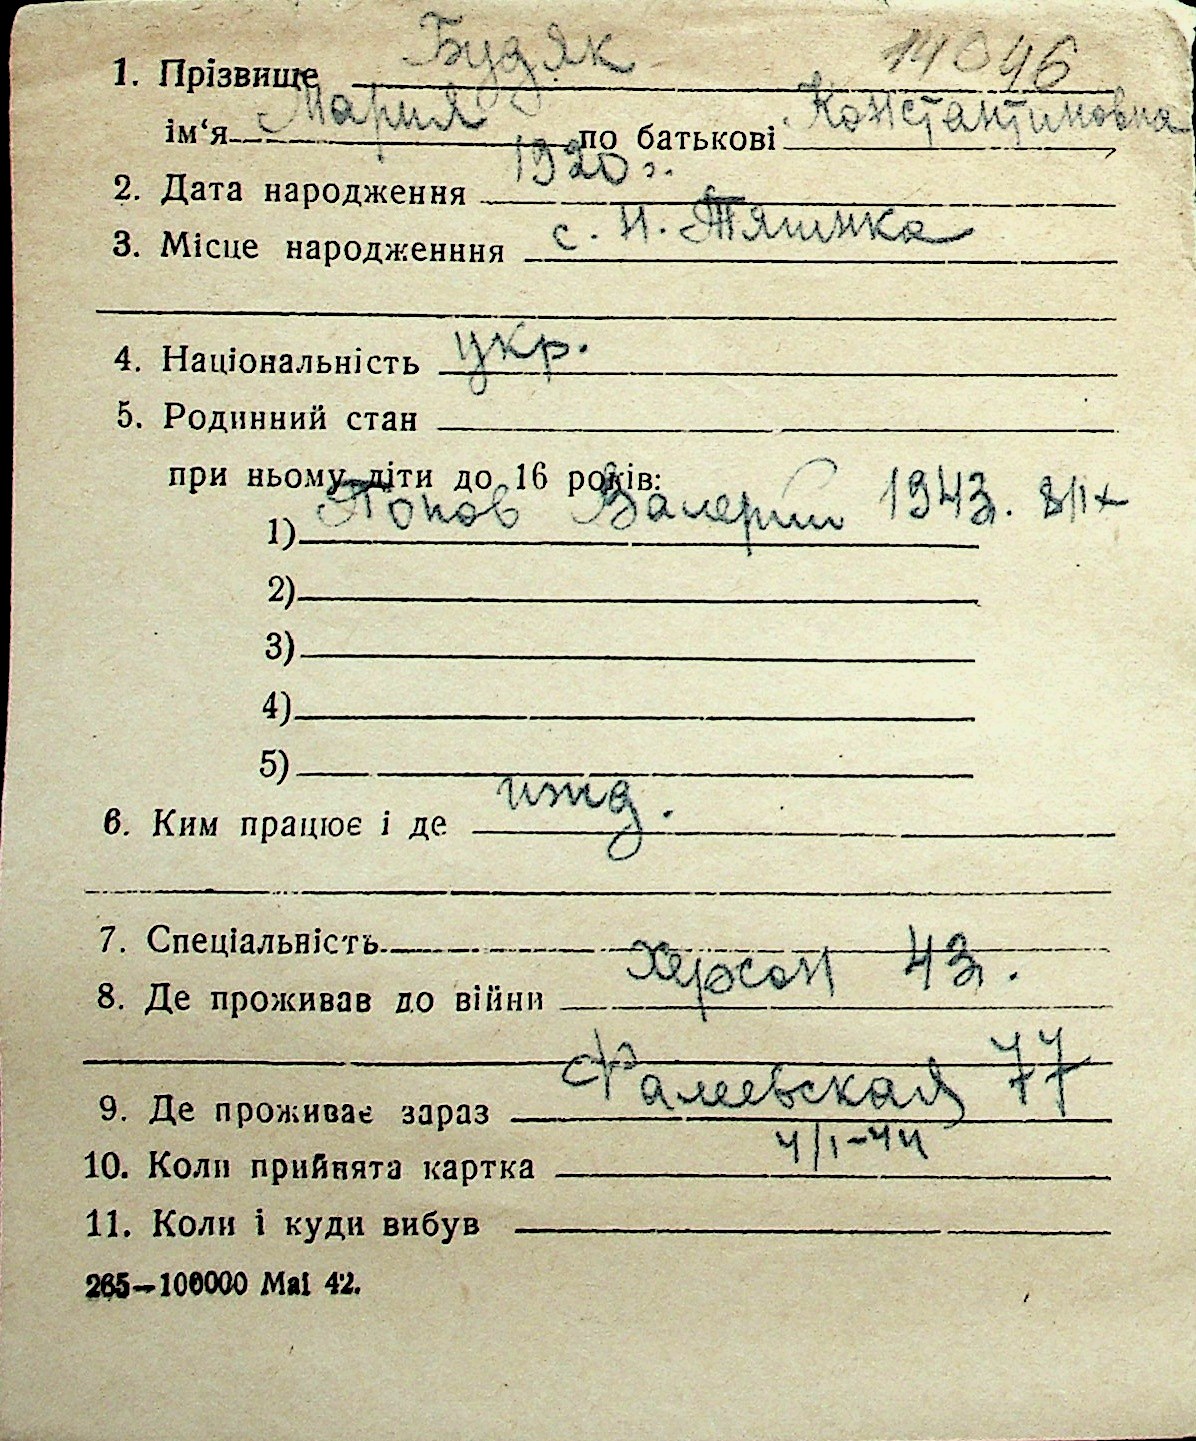 Будяк 14046
1. Прізвище
Мария Константиновна
ім‘я по батькові
1920 г.
2. Дата народження
3. Місце народженння с. Н. Тяшнка
4. Національність укр.
5. Родинний стан
при ньому діти до 16 років:
1) Попов Валерий 1943. 8/IX
2)
3)
4)
5)
6. Ким працює і де ижд.
7. Спеціальність
8. Де проживав до війни Херсон 43.
9. Де проживає зараз Фалеевская 77
10. Коли прийнята картка 4/I-44
11. Коли і куди вибув
265—100000 Mai 42.